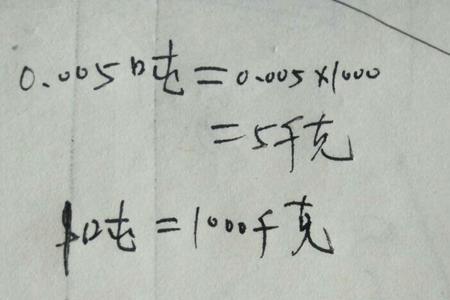 0.005吨=0.005×1000
=5千克
1吨=1000千克